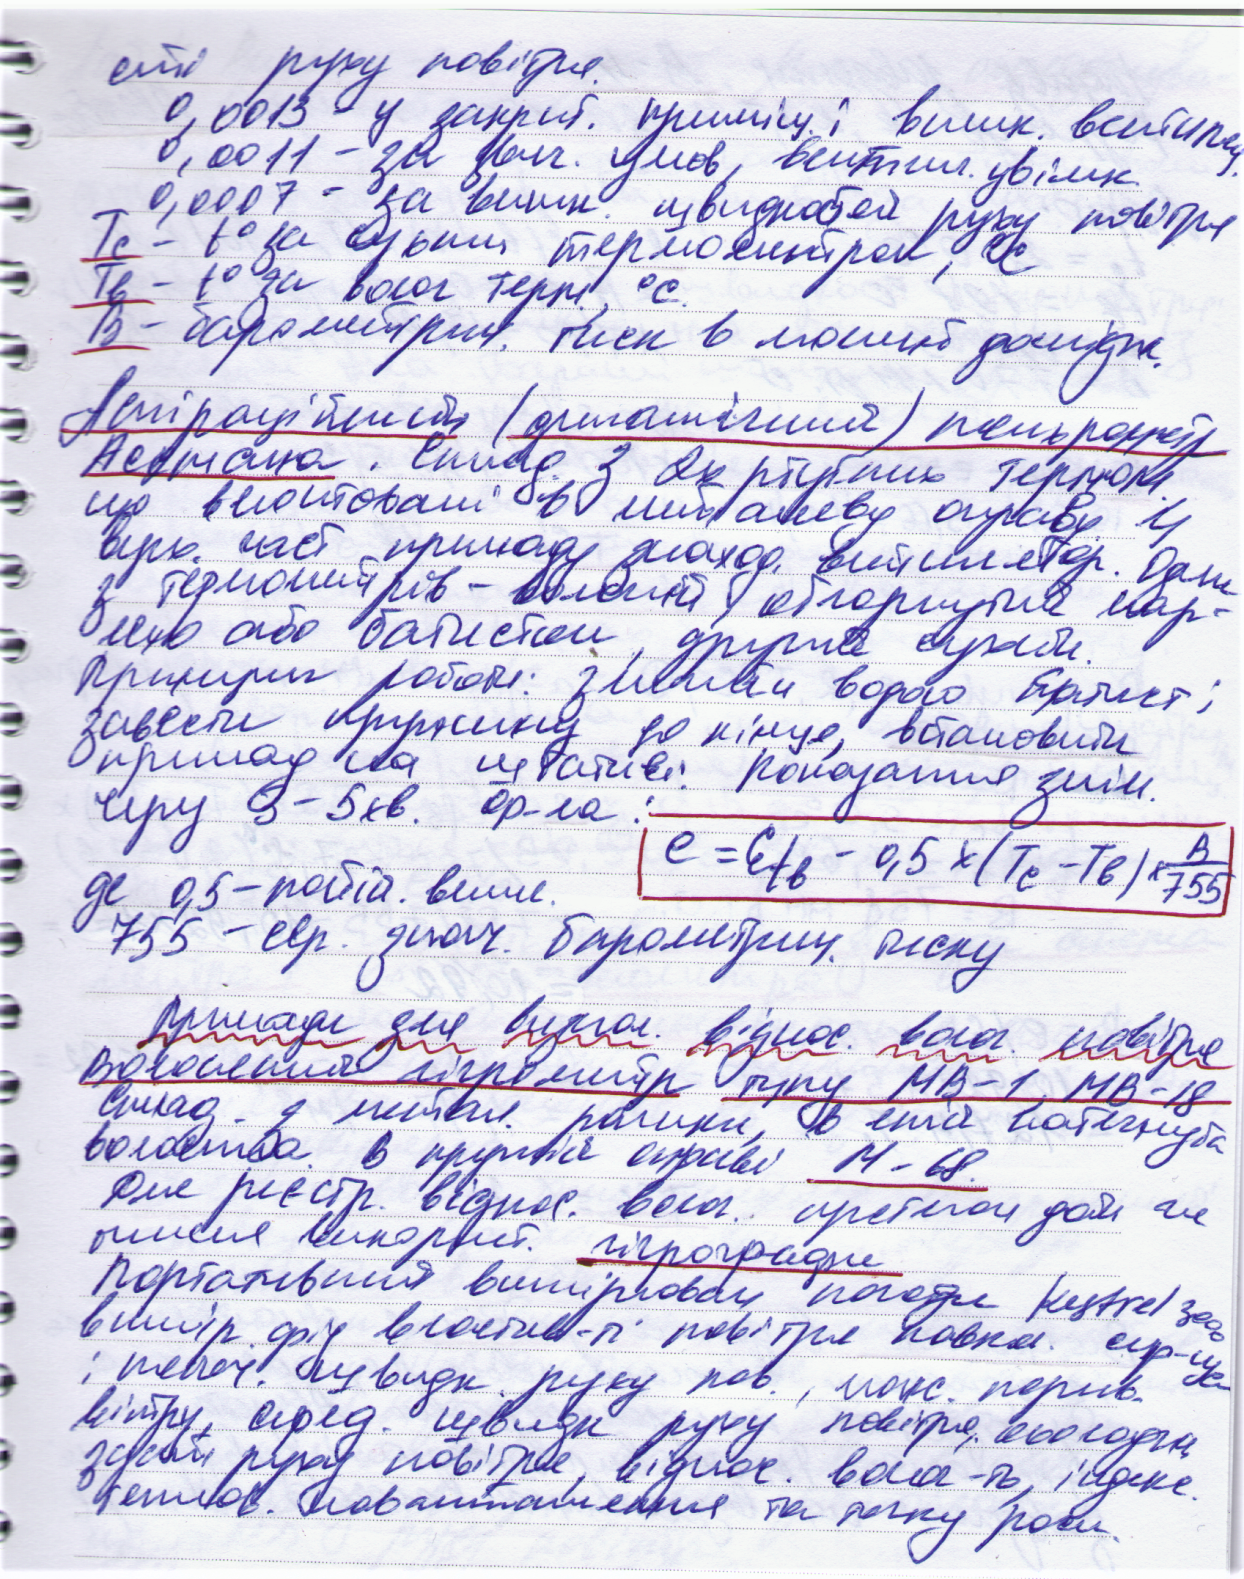 сті руху повітря.
0,0013 – у закрит. приміщ. і вимк. вентиляц.
0,0011 – за умов, вентил. увімк.
0,0007 – за швидкостей руху повітря
Тс – t° за сухим термометром, °С
Тв – t° за волог. терм, °С.
В – барометрич. тиск в момент дослідж.
Аспіраційний (динамічний) психрометр
Ассмана. Склад. з 2х ртутних термом.
що вмонтовані в металеву оправу. У
верх. част приладу знаход. вентилятор. Один
з термометрів – вологий, обгорнутий мар-
лею або батистом, другий сухий.
Принцип роботи: змочити водою батист і
завести пружину до кінця, встановити
прилад на штативі. Показання знім.
через 3 – 5 хв. Ф-ла:
е = Et в – 0,5 × (Тс – Тв) × В/755
де 0,5 – постій. велич.
755 – сер. знач. барометрич. тиску
Прилади для визнач. віднос. волог. повітря
Волосяний гігрометр типу МВ-1, МВ-18
Склад. з метал. рамки, в якій натягнута
волосина. В круглій оправі М-68.
Для реєстр. віднос. волог. протягом доби чи
тижня використ. гігрографи
Портативний вимірювач погоди Kestrel
вимір. фіз властив-ті повітря навкол. сер-ща
і швидк. руху пов., макс. порив.
вітру, серед. швидк руху повітря,
руху повітря, віднос. волог-ть, індекс.
теплов. навантаження та точку роси.